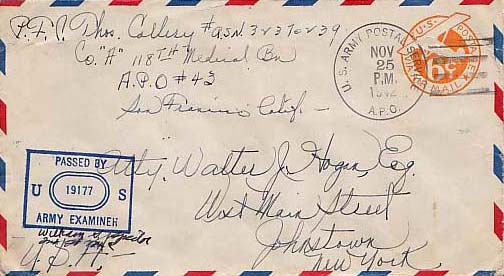 P.F.C. Thos. Collery #ASN. 32370239
Co. "A" 118TH Medical Bn
A.P.O #43
San Francisco Calif.
U.S. ARMY POSTAL SERVICE
NOV
25
P.M.
1942
A.P.O.
U.S. POSTAGE
6c
VIA AIR MAIL
PASSED BY
U 19177 S
ARMY EXAMINER
Atty. Walter J. Hogan, Esq.
West Main Street
Johnstown
New York
U.S.A.